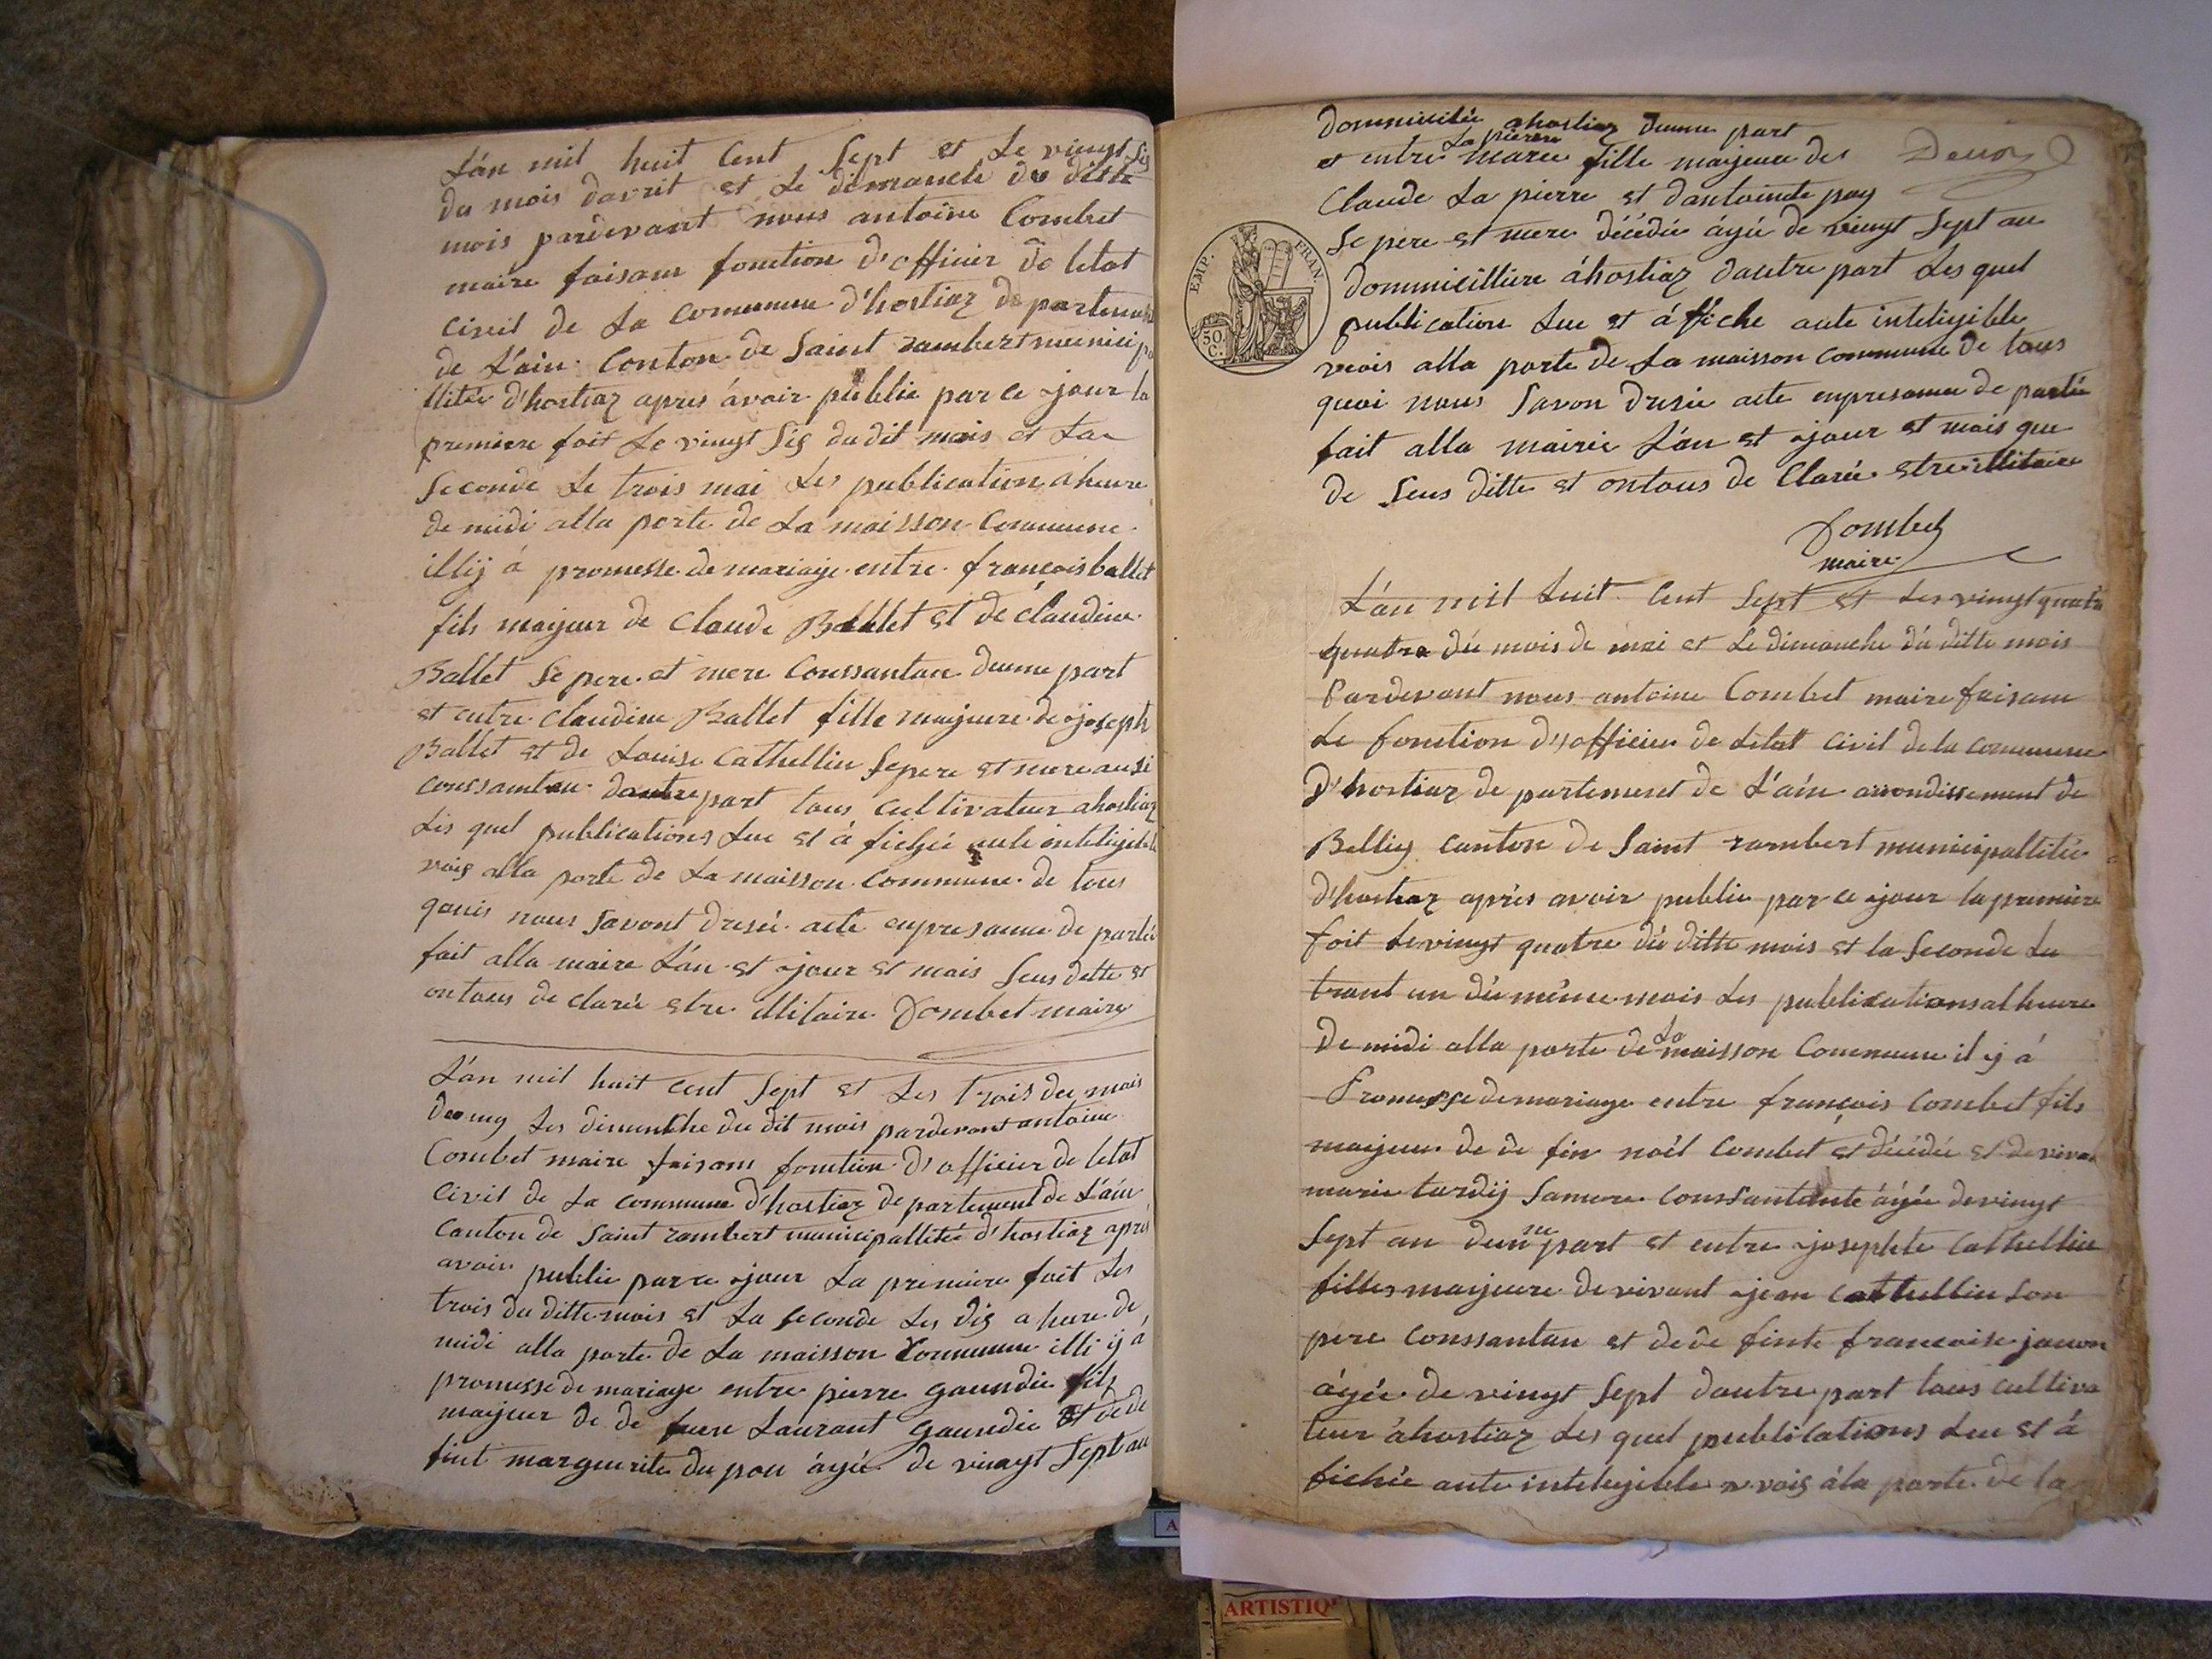 L'an mil huit Cent Sept et Le vingt Sis
du mois davrit et Le dimanche du ditte
mois pardevant nous antoine Combet
maire faisam fonction d'officier de letat
civil de La Commune d'hostiaz de partement
de L'ain Conton de Saint rambert municipa
llitée d'hostiaz apres ávoir publie par ce ajour la
premiere foit Le vingt Sis du dit mois et La
Seconde Le trois mai Les publication á heure
de midi alla porte de La maisson Commune
illij á promesse de mariage entre françois ballet
fils majeur de Claude Ballet et de claudine
Ballet Se pere et mere Conssantan dunne part
et entre Claudine Ballet fille majeure de ajoseph
Ballet et de Louise Cathellin Se pere et mere ausi
conssantan dautre part tous Cultivateur ahostiaz
Les quel publications Lue et á fichée aute inteligible
vois alla porte de La maisson Commune de tous
qouis nous Savont dresée acte enpresanne de partée
fait alla maire L'an et ajour et mais Seus dette et
ontous de clarée etre illitaire Combet maire
L'an mil huit cent Sept et Les trois du mois
de may Les dimenche du dit mois pardevant antoine
Combet maire faisam fonction d'officier de letat
Civil de La commune d'hostiaz de partement de L'ain
Canton de Saint rambert municipallitée d'hostiaz aprés
avoir publie par ce ajour La premiere foit Les
trois du ditte mois et La Seconde Les dis a heure de
midi alla porte de La maisson Commune illi ij á
promesse de mariage entre pierre gaundie fils
majeur de de Laurant gaundie et de de
fint marguerite du pon áyée de vingt Sept an
dommicilée ahostiaz dunne part
La pierre
et entre marie fille majeure des
Claude La pierre et dantoinete pay
Se pere et mere décédée áyée de vingt Sept an
EMP. FRAN.
50 C.
dommicilliere áhostiaz dautre part Les quel
publication Lue et á ffiche aute inteligible
vois alla porte de La maisson Commune de tous
quoi nous Savon dresée acte enpresanne de partée
fait alla mairie L'an et ajour et mois que
de Seus ditte et ontous de Clarée etre illitaire
Combet
maire
L'an mil huit Cent Sept et Les vingt quatre
quatre du mois de mai et Le dimanche du ditte mois
Pardevant nous antoine Combet maire faisam
Le fonction d'officier de Létat civil de la commune
D'hostiaz de partement de L'ain arrondissement de
Belley canton de Saint rambert municipallitée
d'hostiaz aprés avoir publie par ce ajour la premiere
foit Le vingt quatre du ditte mois et la Seconde Le
trant un du même mois Les publications alheure
La
De midi alla porte de maisson Commune il ij á
Promesse de mariage entre françois Combet fils
majeur de de fin noél Combet et décédée et de vivan
marie tardij Samere Conssantante áyée de vingt
ne
Sept an dun part et entre ajosephte Cathellin
filles majeure de vivant ajean Cathellin Son
pere Conssantan et de de finte francoise janon
áyée de vingt Sept dautre part tous cultiva
teur áhostiaz Les quel publications Lue et á
fichée aute inteligible vois ála porte de la
ARTISTIQ